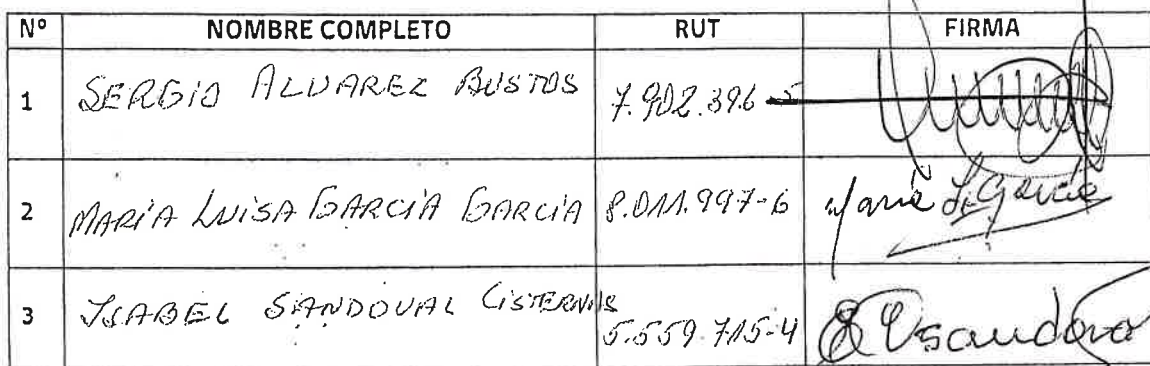 Nº NOMBRE COMPLETO RUT FIRMA
1 SERGIO ALVAREZ BUSTOS 7.902.396-5
2 MARÍA LUISA GARCÍA GARCÍA 8.011.997-6 María L. García
3 ISABEL SANDOVAL CISTERNAS 5.559.715-4